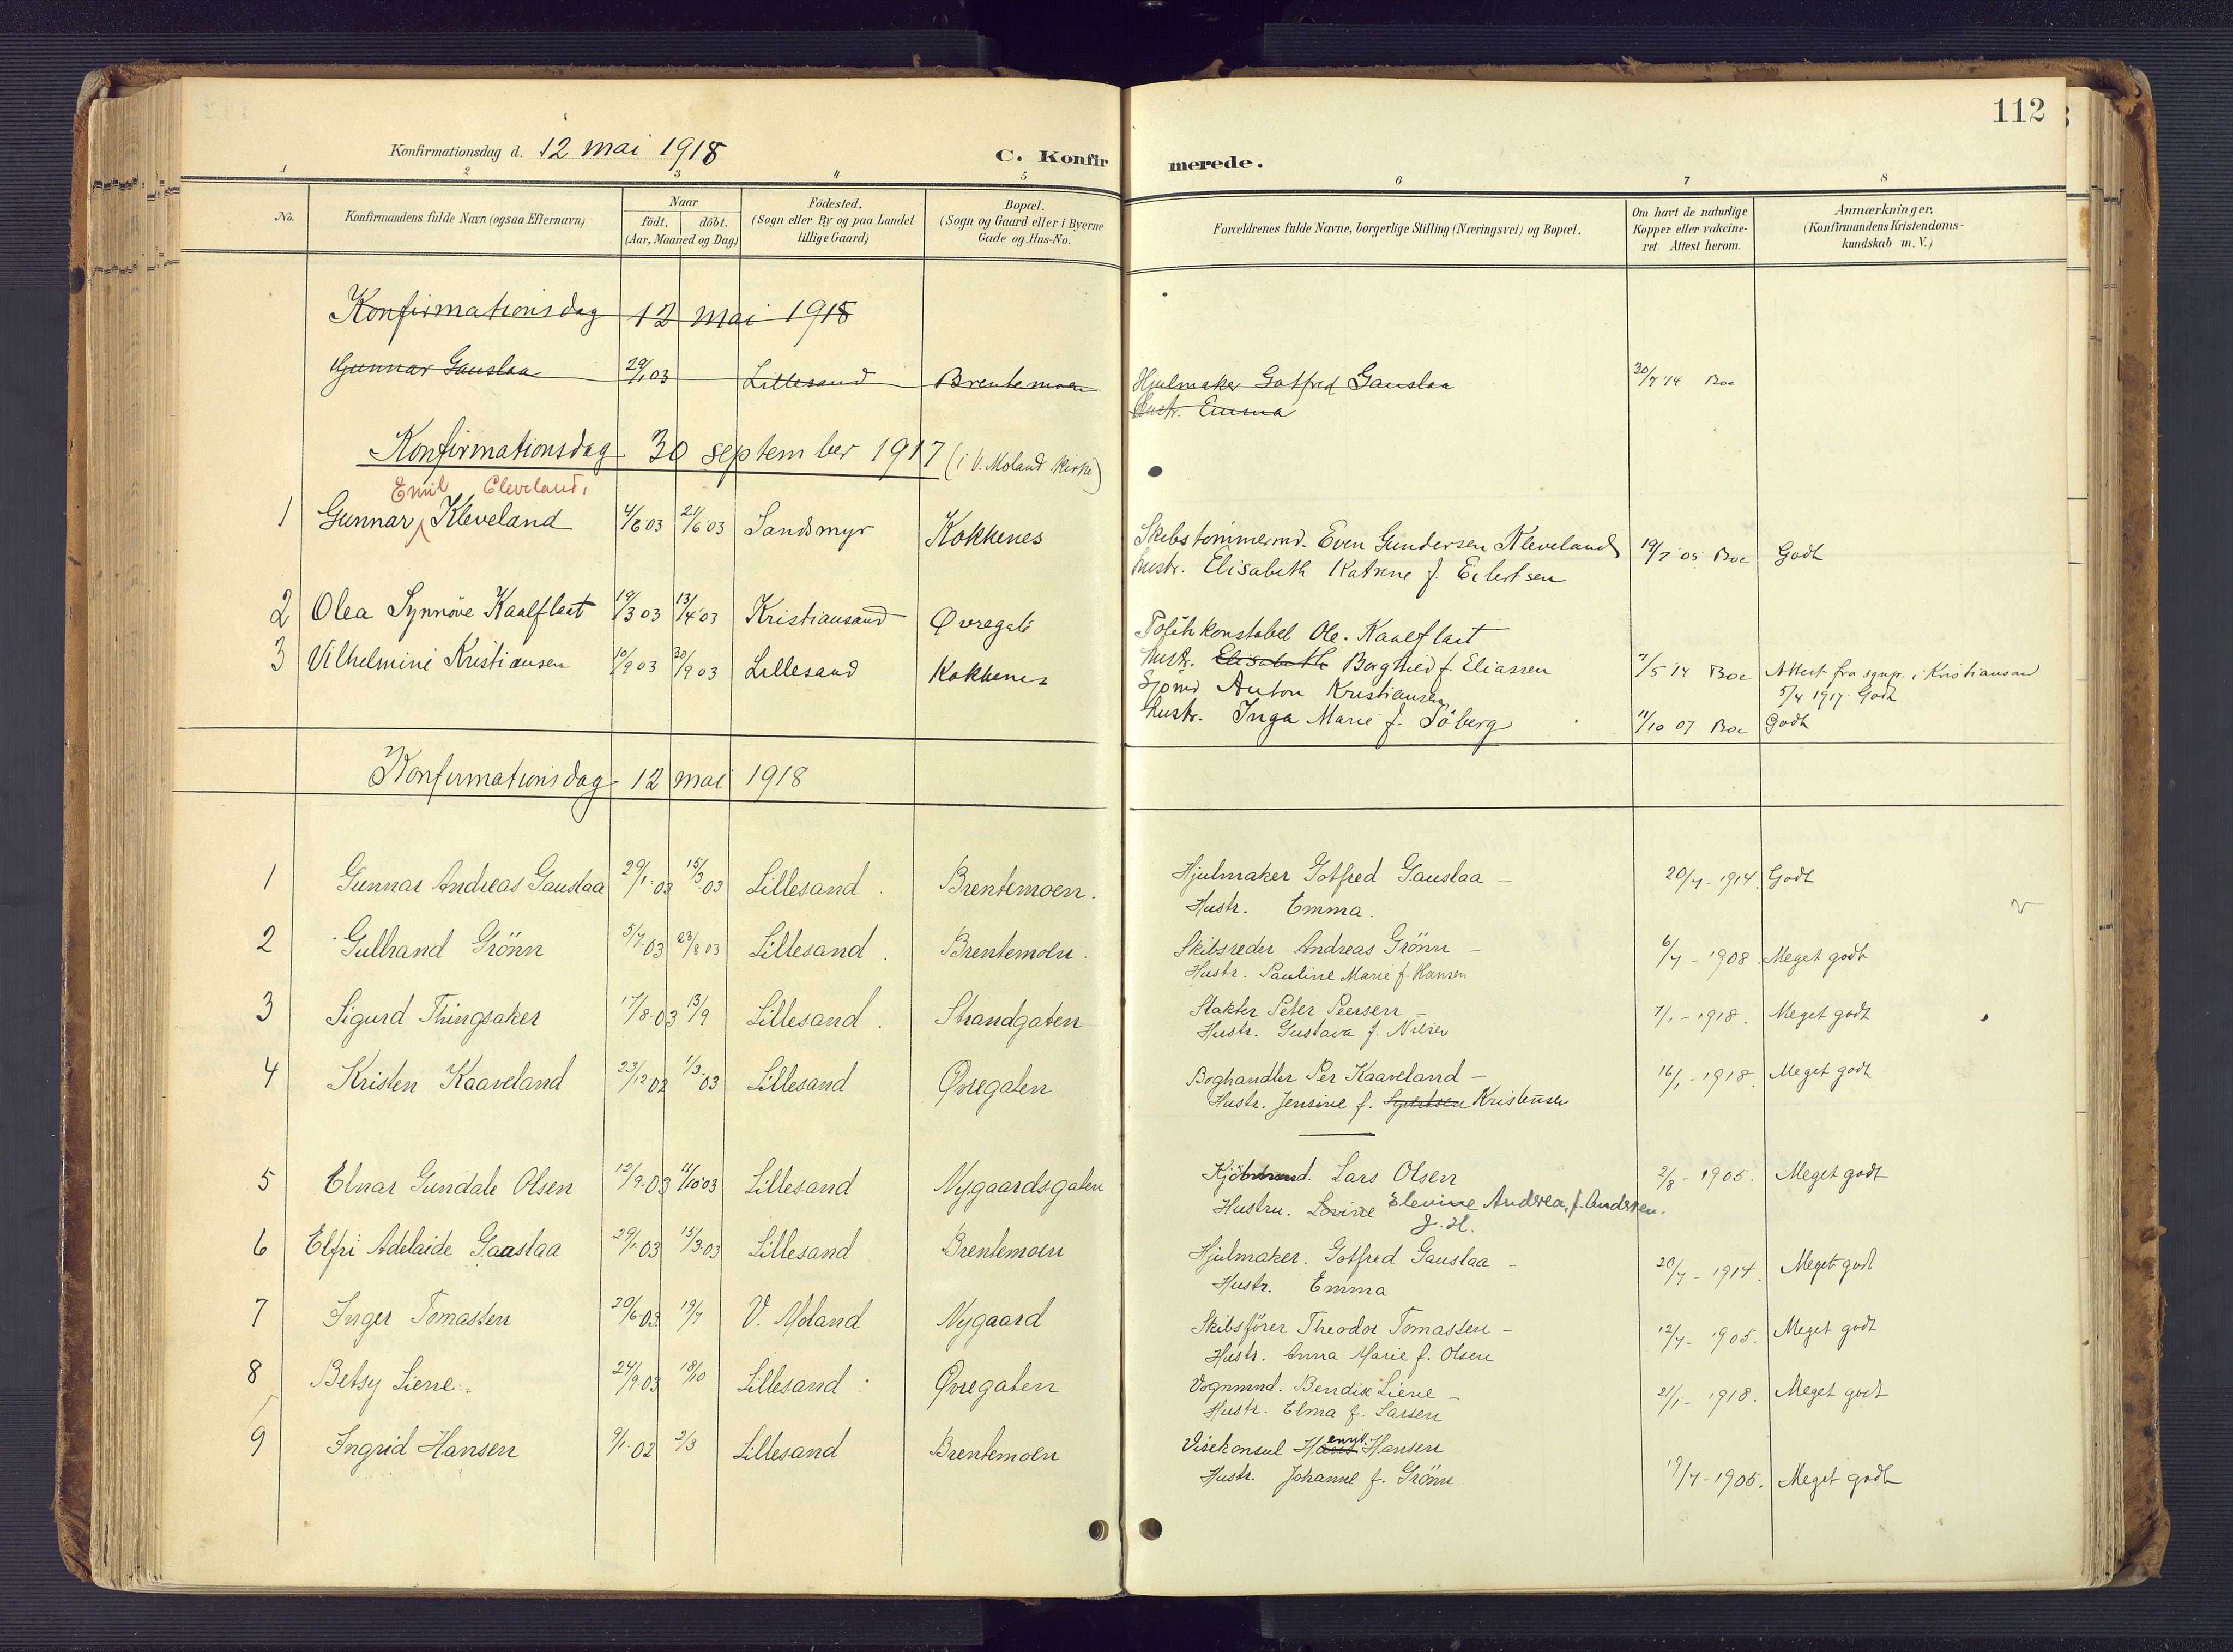 112
Konfirmationsdag d. 12 mai 1918
C. Konfirmerede.
1 2 3 4 5 6 7 8
No. Konfirmandens fulde Navn (ogsaa Efternavn) Naar födt. döbt. (Aar, Maaned og Dag) Födested. (Sogn eller By og paa Landet tillige Gaard) Bopæl. (Sogn og Gaard eller i Byerne Gade og Hus-No. Forældrenes fulde Navne, borgerlige Stilling (Næringsvei) og Bopæl. Om havt de naturlige Kopper eller vakcineret. Attest herom. Anmærkninger. (Konfirmandens Kristendomskundskab m. V.)
Konfirmationsdag 12 mai 1918
Gunnar Gauslaa 29/1 03 Lillesand Brentemoen Hjulmaker Gotfred Gauslaa 30/7 14 Boe
Hustr. Emma
Konfirmationsdag 30 september 1917 (i V. Moland kirke)
Emil Cleveland.
1 Gunnar Kleveland 4/6 03 21/6 03 Sandsmyr Kokkenes Skibstömmermd. Even Gundersen Kleveland 19/7 05 Boe Godt
hustr. Elisabeth Katrine f. Eilertsen
2 Olea Synnöve Kaalflaat 19/3 03 13/4 03 Kristiansand Øvregate Politikonstabel Ole. Kaalflaat
hustr. Elisabeth Borghild f. Eliassen 7/5 14 Boe Attest fra sgnp. i Kristiansand
5/4 1917. Godt
3 Vilhelmine Kristiansen 10/9 03 20/9 03 Lillesand Kokkenes Sjömd Anton Kristiansen
hustr. Inga Marie f. Söberg 11/10 07 Boe Godt
Konfirmationsdag 12 mai 1918
1 Gunnar Andreas Gauslaa 29/1-03 15/3 03 Lillesand. Brentemoen. Hjulmaker Gotfred Gauslaa - 20/7-1914. Godt
Hustr. Emma.
2 Gulbrand Grönn 5/7 03 23/8 03 Lillesand. Brentemoen. Skibsreder Andreas Grönn - 6/7-1908 Meget godt
Hustr. Pauline Marie f. Hansen
3 Sigurd Thingsaker 17/8-03 13/9 Lillesand. Strandgaten Slakter Peter Peersen - 7/1-1918. Meget godt
Hustr. Gustava f. Nilsen
4 Kristen Kaaveland 23/12 02 1/3-03 Lillesand Øvregaten Boghandler Per Kaaveland - 16/1-1918. Meget godt
Hustr. Jensine f. Kristensen
5 Elnar Gundale Olsen 12/9-03 11/10 03 Lillesand Nygaardsgaten Kjöbmand. Lars Olsen 2/8-1905. Meget godt
Hustru. Lovise Elevine Andrea, f. Andersen.
J. H.
6 Elfri Adelaide Gauslaa 29/1-03 15/3-03 Lillesand Brentemoen Hjulmaker. Gotfred Gauslaa - 20/7-1914. Meget godt
Hustr. Emma
7 Inger Tomassen 20/6-03 19/7 V. Moland Nygaard Skibsförer Theodor Tomassen - 12/7-1905. Meget godt
Hustr. Anna Marie f. Olsen
8 Betsy Liene. 24/9-03 18/10 Lillesand Øvregaten Vognmnd. Bendix Liene - 21/1-1918. Meget godt
Hustr. Elma f. Larsen
9 Ingrid Hansen 9/1-02 2/3 Lillesand Brentemoen Visekonsul Henrik Hansen
Hustr. Johanne f. Grönn 17/7-1905. Meget godt